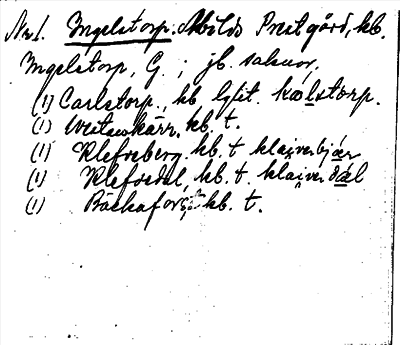 No 1. Ingelstorp. Abilds Prestgård, kb.
Ingelstorp, G. ; jb. saknar.
(1) Carlstorp., kb lyfit. kælstorp.
(1) kärr, kb. t.
(1) Klefveberg. kb. t klaiverbjær
(1) Klefvedal, kb. t. klaiverdæl
(1) Bäckafors, kb. t.